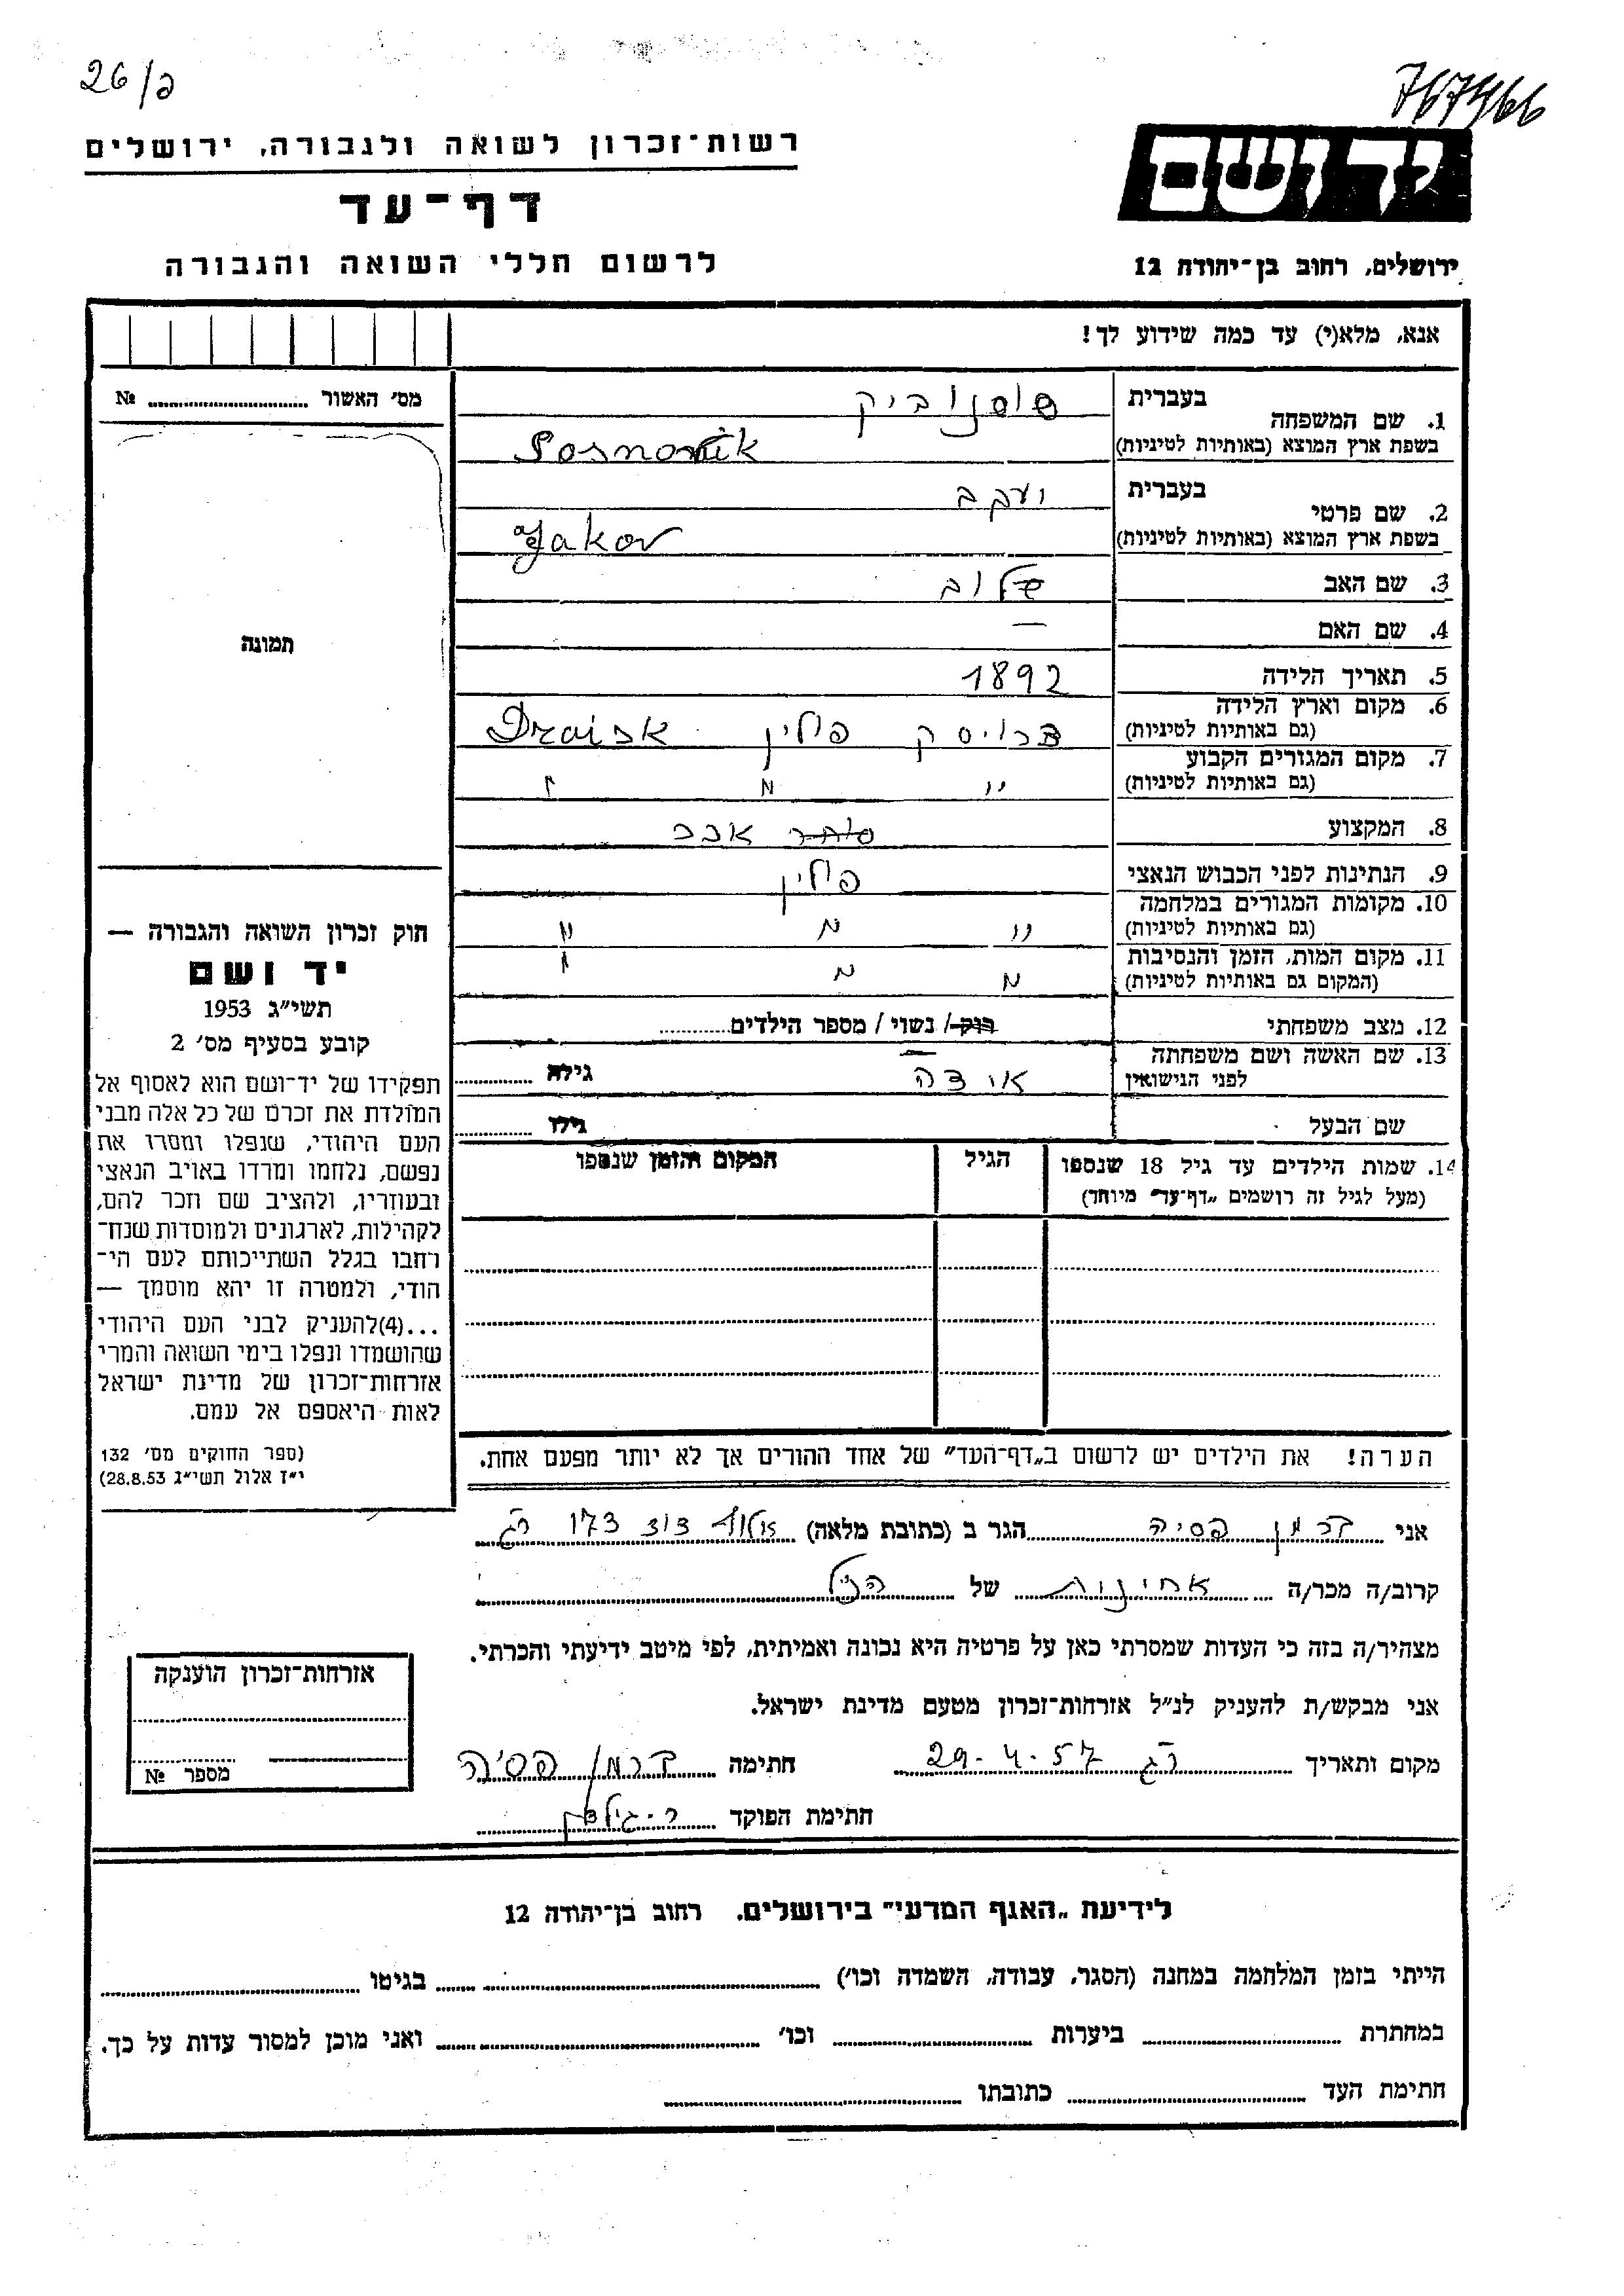 26/כ
767466
רשות-זכרון לשואה ולגבורה, ירושלים
דף-עד
לרשום חללי השואה והגבורה
יד ושם
ירושלים, רחוב בן-יהודה 12
אנא, מלא(י) עד כמה שידוע לך!
מס׳ האשור № 
1. שם המשפחה
בעברית סוסנוביק
בשפת ארץ המוצא (באותיות לטיניות) Sosnovik
2. שם פרטי
בעברית יעקב
בשפת ארץ המוצא (באותיות לטיניות) Jakov
3. שם האב
4. שם האם —
5. תאריך הלידה 1892
6. מקום וארץ הלידה
(גם באותיות לטיניות) פולין
7. מקום המגורים הקבוע
(גם באותיות לטיניות) " " "
8. המקצוע סוחר
9. הנתינות לפני הכבוש הנאצי פולין
10. מקומות המגורים במלחמה
(גם באותיות לטיניות) " " "
11. מקום המות, הזמן והנסיבות
(המקום גם באותיות לטיניות) " " "
12. מצב משפחתי רוק / נשוי / מספר הילדים
13. שם האשה ושם משפחתה
לפני הנישואין גילה
שם הבעל גילו
14. שמות הילדים עד גיל 18 שנספו הגיל המקום והזמן שנספו
(מעל לגיל זה רושמים „דף-עד" מיוחד)
תמונה
חוק זכרון השואה והגבורה —
יד ושם
תשי״ג 1953
קובע בסעיף מס׳ 2
תפקידו של יד-ושם הוא לאסוף אל
המולדת את זכרם של כל אלה מבני
העם היהודי, שנפלו ומסרו את
נפשם, נלחמו ומרדו באויב הנאצי
ובעוזריו, ולהציב שם וזכר להם,
לקהילות, לארגונים ולמוסדות שנח-
רחבו בגלל השתייכותם לעם הי-
הודי, ולמטרה זו יהא מוסמך —
...(4)להעניק לבני העם היהודי
שהושמדו ונפלו בימי השואה והמרי
אזרחות-זכרון של מדינת ישראל
לאות היאספם אל עמם.
(ספר החוקים מס׳ 132
י״ז אלול תשי״ג 28.8.53)
הערה! את הילדים יש לרשום ב„דף-העד" של אחד ההורים אך לא יותר מפעם אחת.
אני ברמן פסיה הגר ב (כתובת מלאה) רג
קרוב/ה מכר/ה אחינות של הנ״ל
מצהיר/ה בזה כי העדות שמסרתי כאן על פרטיה היא נכונה ואמיתית, לפי מיטב ידיעתי והכרתי.
אני מבקש/ת להעניק לנ״ל אזרחות-זכרון מטעם מדינת ישראל.
מקום ותאריך רג 29-4-57 חתימה ברמן פסיה
חתימת הפוקד
אזרחות-זכרון הוענקה
מספר №
לידיעת „האגף המדעי" בירושלים, רחוב בן-יהודה 12
הייתי בזמן המלחמה במחנה (הסגר, עבודה, השמדה וכו׳) בגיטו
במחתרת ביערות וכו׳ ואני מוכן למסור עדות על כך.
חתימת העד כתובתו